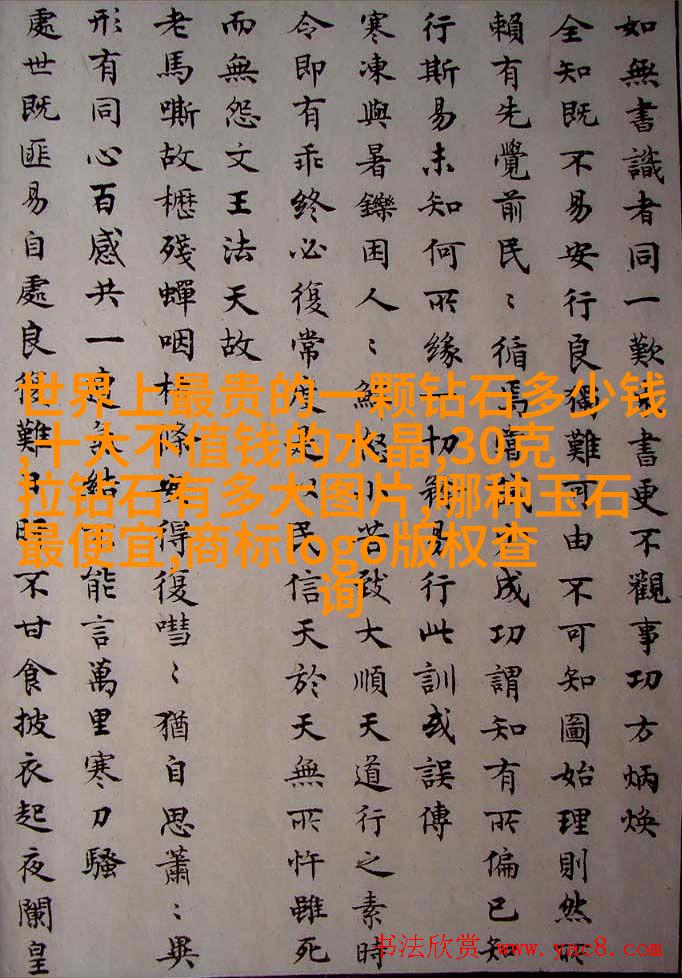 如無書識者同一歎書更不觀事功方炳煥
全知既不易安行良獨難可由不可知圖始理則然所
賴有先覺前民〻循焉當成功謂知有所偏已知
行斯易未知何所緣一切易行此訓或誤傳
寒凍與暑鑠困人〻鮮怨小苦致大順天道行之素時
令即有乖終必復常度是以民信天於天無所忤雖死
而無怨文王法天故
老馬嘶故櫪殘蟬咽枯條安得復嘒〻猶自思蕭〻異
形有同心百感共一結能言萬里寒刀騷
處世既匪易自處良復難不甘食披衣起夜闌皇
世界上最贵的一颗钻石多少钱
,十大不值钱的水晶,30克
拉钻石有多大图片,哪种玉石
最便宜,商标logo版权查
询
书法欣赏 www.yac8.com